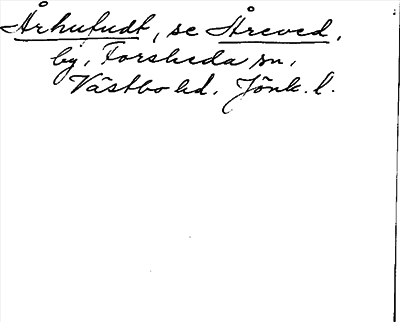 Århufudt, se Åreved,
by, Forsheda sn,
Västbo hd, Jönk. l.